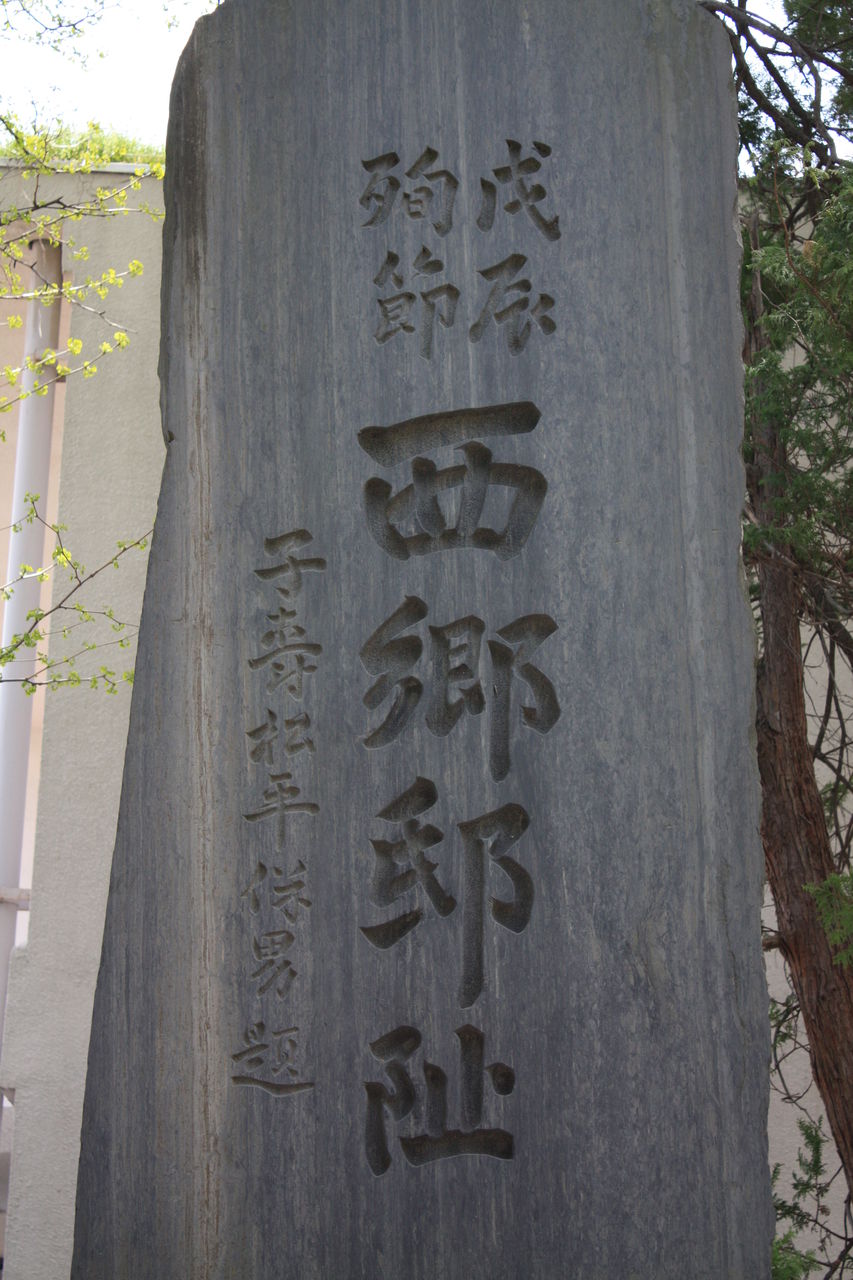 戊辰
殉節
西郷邸阯
子爵松平保男題